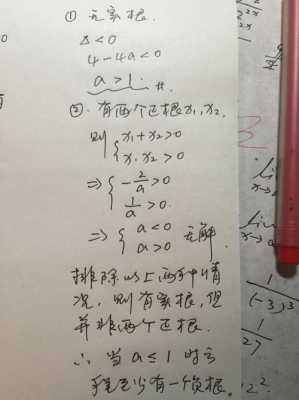 ① 无实根.
Δ<0
4-4a<0
a>1.
② 有两个正根x₁,x₂.
则 { x₁+x₂>0
x₁x₂>0
⇒ { -2/a>0
1/a>0.
⇒ { a<0
a>0 无解.
排除以上两种情
况,则有实根,但
并非两个正根.
∴ 当 a≤1 时方
程至少有一个负根.
lim
x→
lim
x→
1
(-3)³
1
27